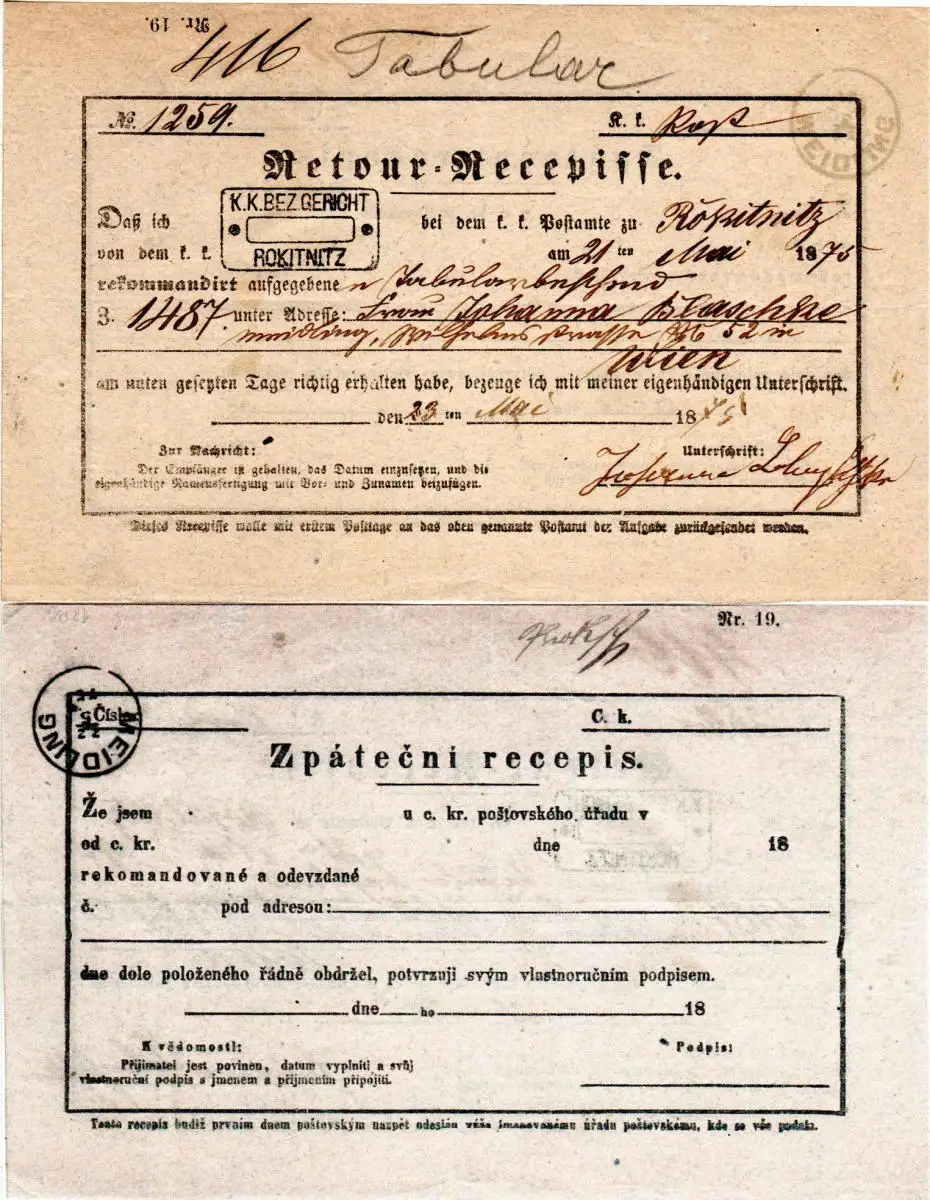 Nr. 19.
416 Tabular
MEIDLING
№ 1259.
K. k. Post
Retour-Recepisse.
Daß ich
K.K.BEZ.GERICHT
ROKITNITZ
bei dem k. k. Postamte zu Rokitnitz
von dem k. k.
am 21 ten Mai 1875
rekommandirt aufgegebene n Tabularbescheid
Z. 1487. unter Adresse: Frau Johanna Blaschke
Meidling, Wilhelmsstrasse № 52 in
Wien
am unten gesetzten Tage richtig erhalten habe, bezeuge ich mit meiner eigenhändigen Unterschrift.
den 23 ten Mai 1875
Zur Nachricht:
Unterschrift:
Der Empfänger ist gehalten, das Datum einzusetzen, und die
eigenhändige Namensfertigung mit Vor- und Zunamen beizufügen.
Johanna
Dieses Recepisse wolle mit erstem Posttage an das oben genannte Postamt der Aufgabe zurückgesendet werden.
Nr. 19.
MEIDLING
Číslo
C. k.
Zpáteční recepis.
Že jsem
u c. kr. poštovského úřadu v
od c. kr.
dne 18
rekomandované a odevzdané
č. pod adresou:
dne dole položeného řádně obdržel, potvrzuji svým vlastnoručním podpisem.
dne ho 18
K vědomosti:
Podpis:
Přijimatel jest povinen, datum vyplniti a svůj
vlastnoruční podpis s jmenem a přijmením připojiti.
Tento recepis budiž prvním dnem poštovským nazpět odeslán výše jmenovanému úřadu poštovskému, kde se vše podalo.